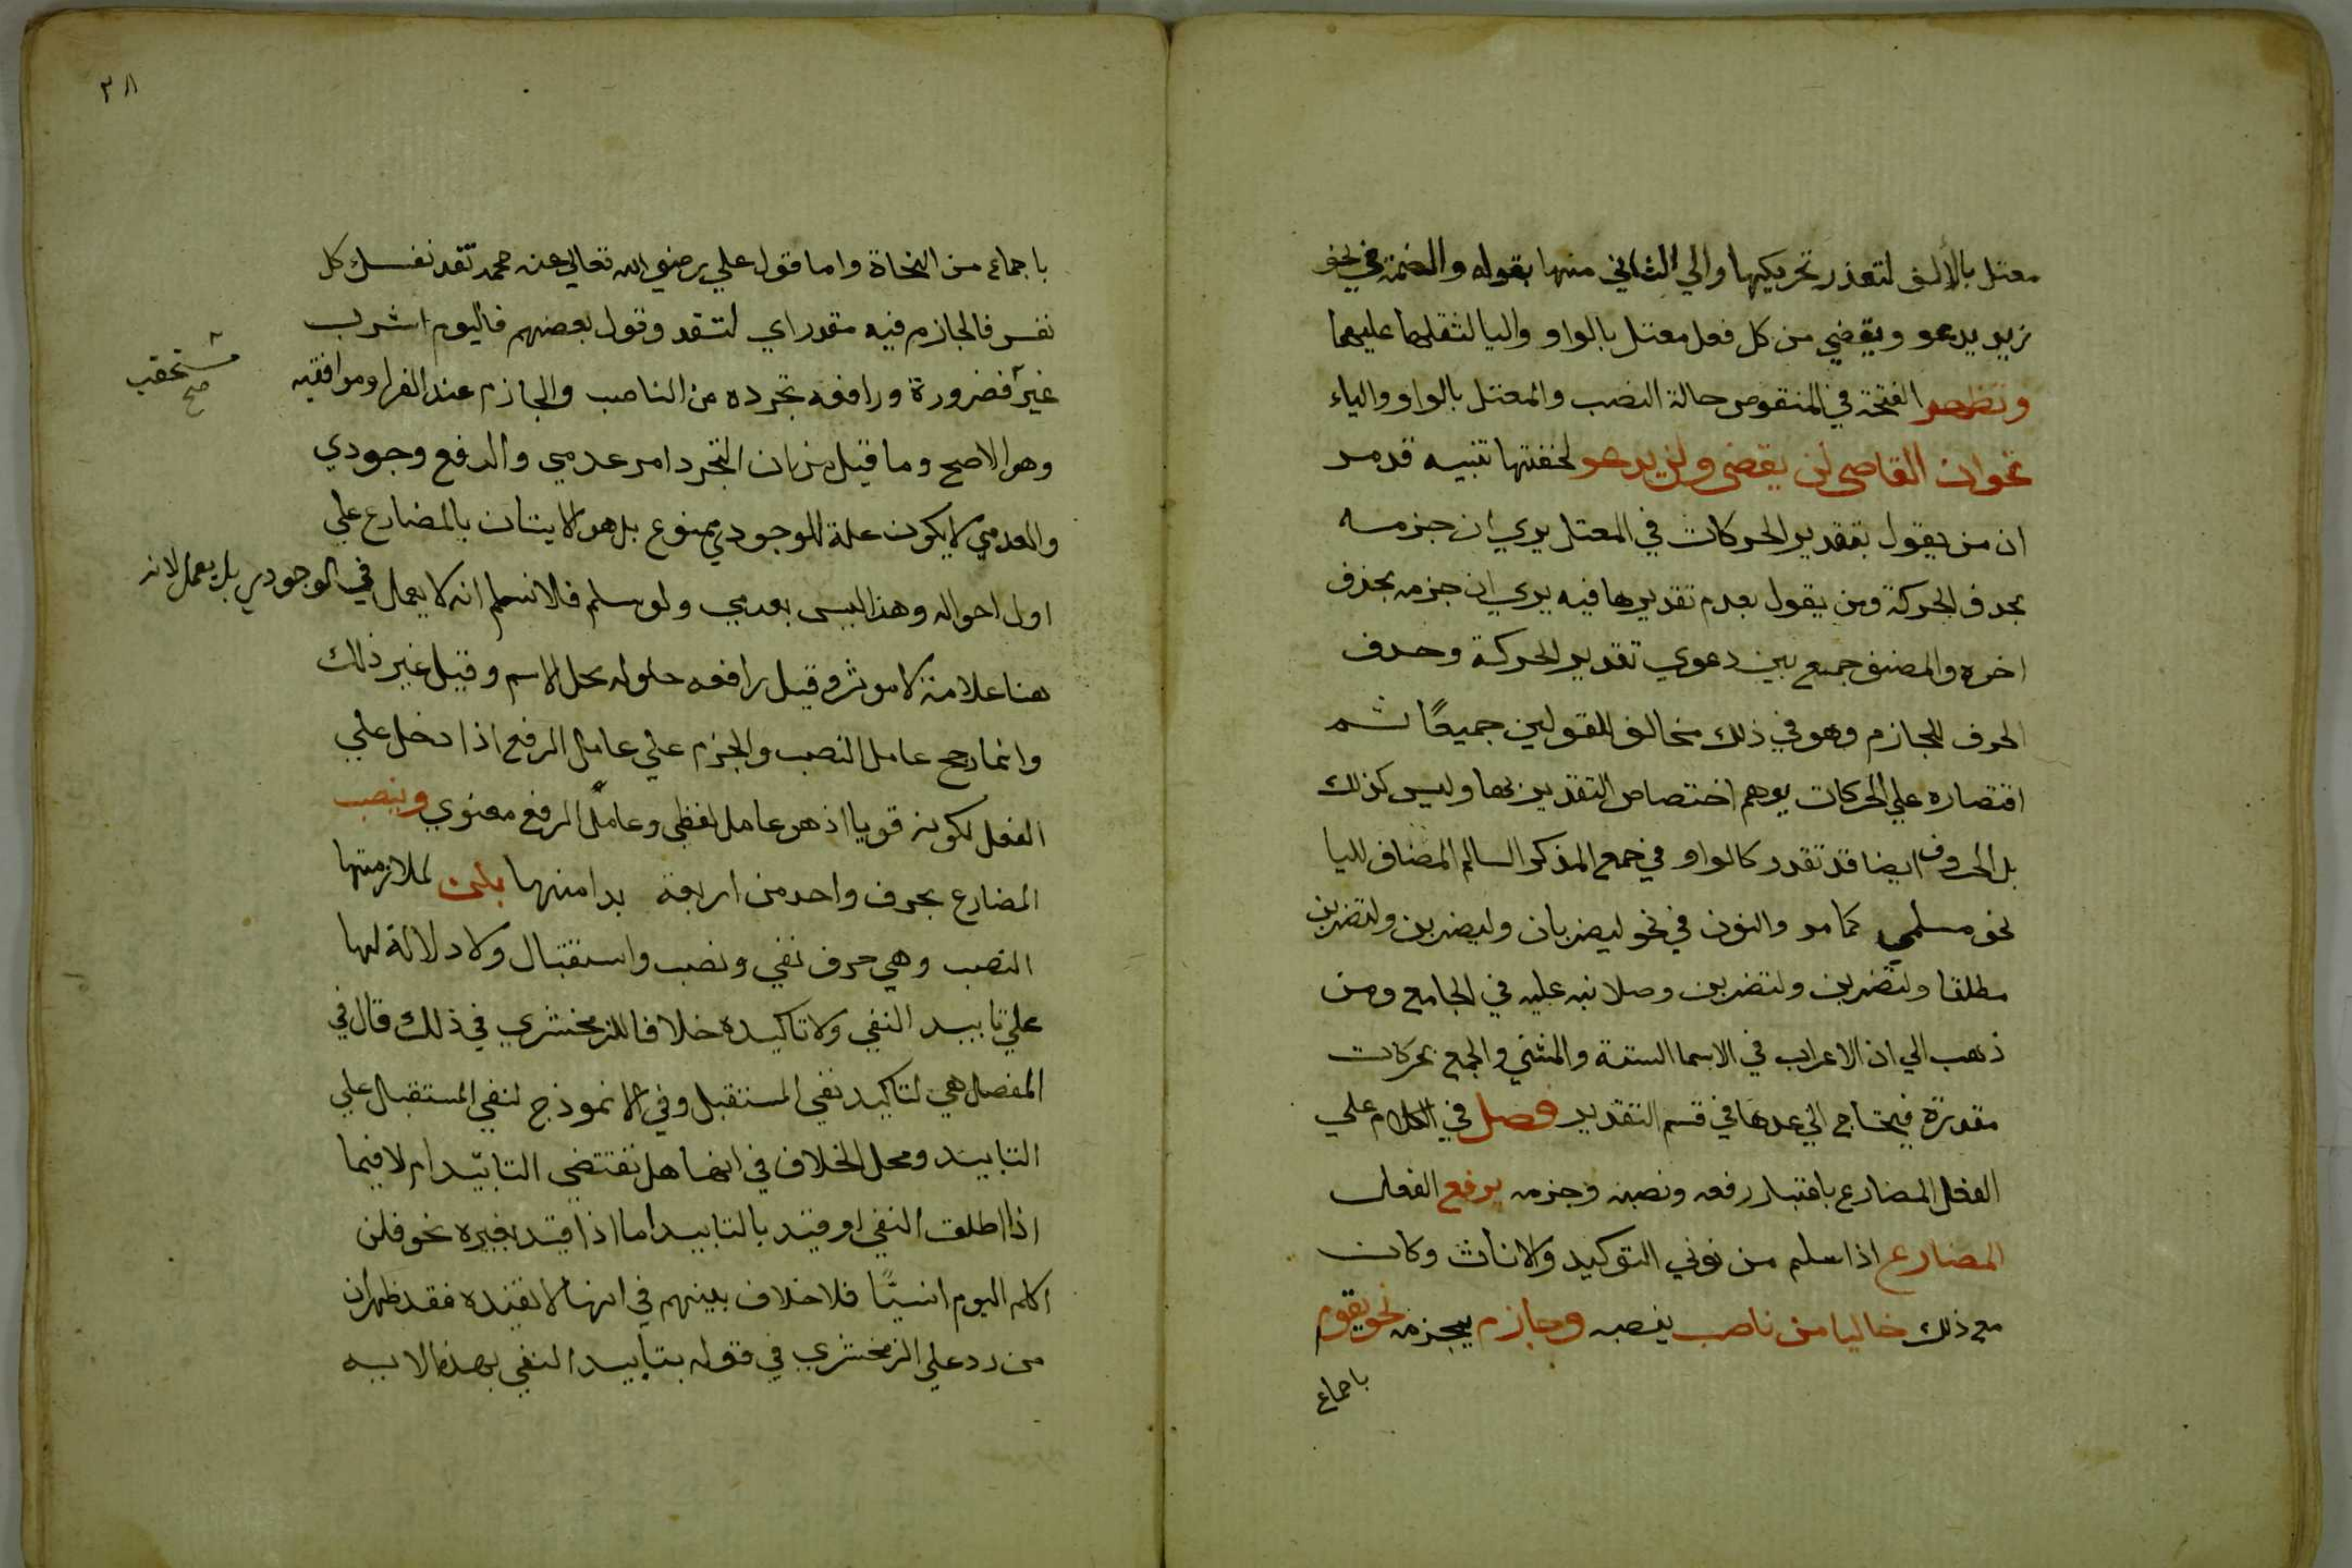 معتل بالألف لتعذر تحريكها والي الثاني منها بقوله والضمة في نحو
زيد يدعو ويقضي من كل فعل معتل بالواو واليا لثقلها عليهما
وتظهر الفتحة في المنقوص حالة النصب والمعتل بالواو والياء
نحو ان القاضي لن يقضي ولن يدعو لخفتها تنبيه قد مر
ان من يقول بتقدير الحركات في المعتل يري ان جزمه
بحدف الحركة ومن يقول بعدم تقديرها فيه يري ان جزمه بحذف
اخره والمصنف جميع بين دعوي تقدير الحركة وحدف
الحرف للجازم وهو في ذلك مخالف للقولين جميعًا ثم
اقتصاره علي الحركات يوهم اختصاص التقدير بها وليس كذلك
بل الحروف ايضا قد تقدر كالواو في جمع المذكر السالم المضاف لليا
نحو مسلمي كما مر والنون في نحو ليضربان وليضربن ولتضربن
مطلقا ولتضربن ولتضربن وصلا نبه عليه في الجامع ومن
ذهب الي ان الاعراب في الاسما الستة والمثني والجمع بحركات
مقدرة فيحتاج الي عدها في قسم التقدير فصل في الكلام علي
الفعل المضارع باعتبار رفعه ونصبه وجزمه يرفع الفعل
المضارع اذا سلم من نوني التوكيد والاناث وكان
مع ذلك خاليا من ناصب ينصبه وجازم يجزمه نحو يقوم
باجماع
٣٨
باجماع من النحاة واما قول علي رضي الله تعالي عنه محمد تفد نفسك كل
نفس فالجازم فيه مقدر اي لتفد وقول بعضهم فاليوم اشرب
غير فضرورة ورافعه تجرده من الناصب والجازم عند الفرا وموافقيه
مستحقب
صح
وهو الاصح وما قيل من ان التجرد امر عدمي والرفع وجودي
والعدمي لا يكون علة للوجودي ممنوع بل هو الايتان بالمضارع علي
اول احواله وهذا ليس بعدمي ولو سلم فلا نسلم انه لا يعمل في الوجودي بل يعمل لانه
هنا علامة لا موثر وقيل رافعه حلوله محل الاسم وقيل غير ذلك
وانما رجح عامل النصب والجزم علي عامل الرفع اذا دخل علي
الفعل لكونه قويا اذ هو عامل لفظي وعامل الرفع معنوي وينصب
المضارع بحرف واحد من اربعة بدا منها بلن لملازمتها
النصب وهي حرف نفي ونصب واستقبال ولا دلالة لها
علي تابيد النفي ولا تاكيده خلافا للزمخشري في ذلك قال في
المفصل هي لتاكيد نفي المستقبل وفي الانموذج لنفي المستقبل علي
التابيد ومحل الخلاف في انها هل تقتضي التابيد ام لا فيما
اذا اطلق النفي او قيد بالتابيد اما اذا قيد بغيره نحو فلن
اكلم اليوم انسيًا فلا خلاف بينهم في انها لا تفيده فقد ظهر ان
من رد علي الزمخشري في قوله بتابيد النفي بهذه الايه